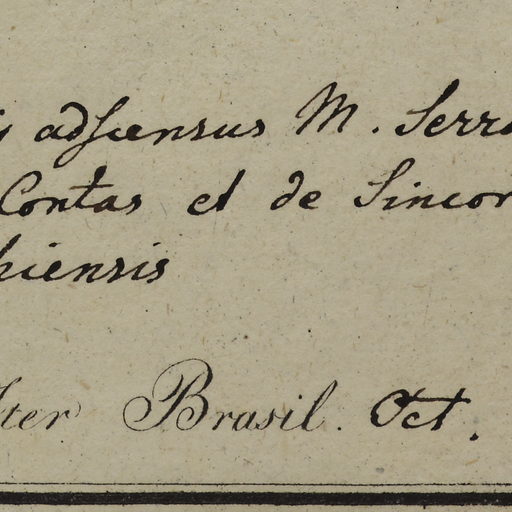 adscensus M. Serra
Contas et de Sincor
hiensis
Iter Brasil. Oct.